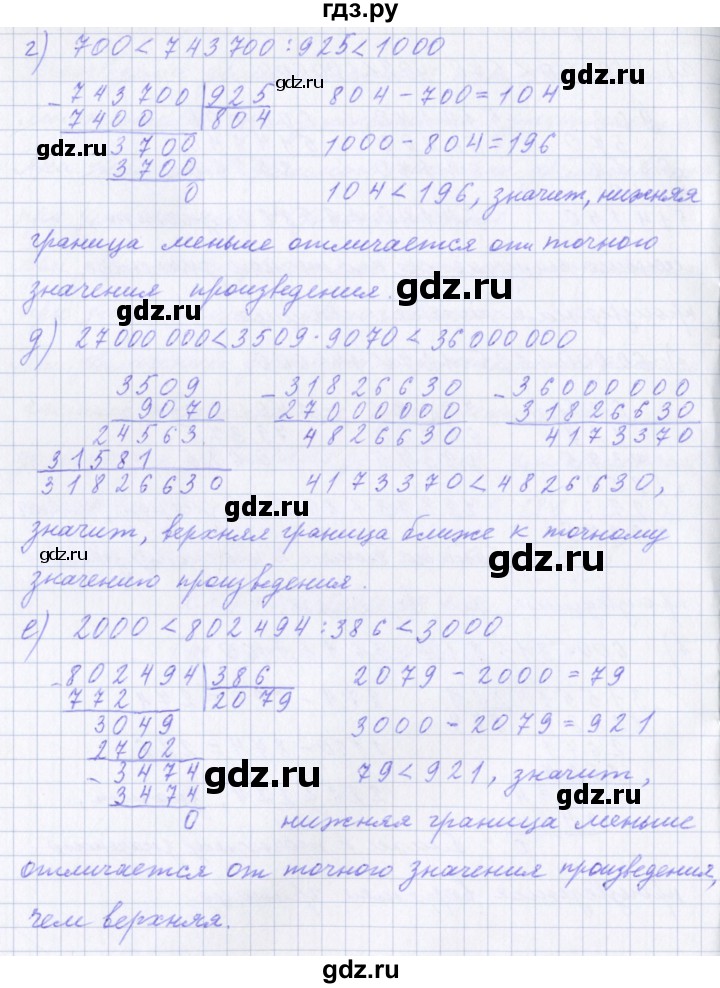 гдз.ру
г) 700 < 743700 : 925 < 1000
gdz.ru
743700 | 925   804 - 700 = 104
- 7400   804
gdz.ru
3700   1000 - 804 = 196
3700
0   104 < 196, значит, нижняя
граница меньше отличается от точного
gdz.ru
значения произведения.
gdz.ru
д) 27000000 < 3509 · 9070 < 36000000
3509   - 31826630   - 36000000
9070   27000000   31826630
24563   4826630   4173370
31581
31826630   4173370 < 4826630,
gdz.ru
значит, верхняя граница ближе к точному
gdz.ru   gdz.ru
значению произведения.
е) 2000 < 802494 : 386 < 3000
- 802494 | 386   2079 - 2000 = 79
772   2079
3049   3000 - 2079 = 921
2702
- 3474   79 < 921, значит,
gdz.ru
3474   gdz.ru
0   нижняя граница меньше
отличается от точного значения произведения,
чем верхняя.
gdz.ru
gdz.ru